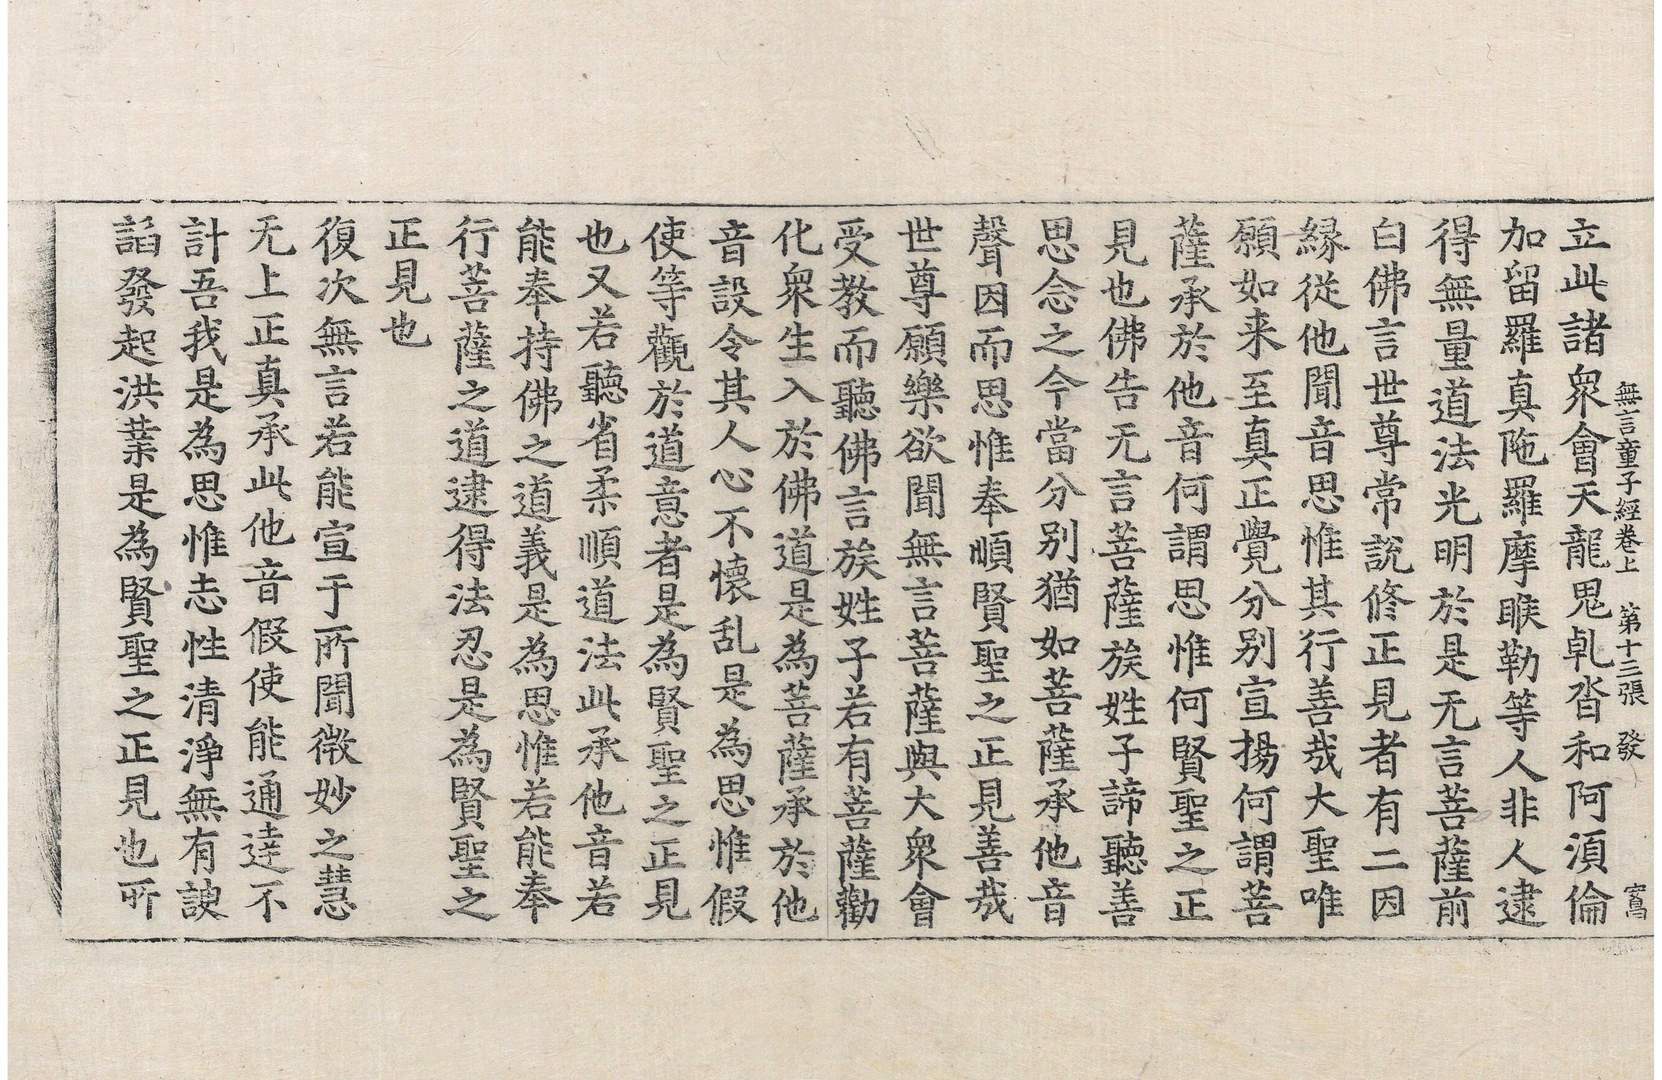 無言童子經卷上 第十三張 發
立此諸衆會天龍鬼乹沓和阿須倫
加留羅真陁羅摩睺勒等人非人逮
得無量道法光明於是无言菩薩前
白佛言世尊常說修正見者有二因
緣從他聞音思惟其行善哉大聖唯
願如来至真正覺分別宣揚何謂菩
薩承於他音何謂思惟何賢聖之正
見也佛告无言菩薩族姓子諦聽善
思念之今當分別猶如菩薩承他音
聲因而思惟奉順賢聖之正見善哉
世尊願樂欲聞無言菩薩與大衆會
受教而聽佛言族姓子若有菩薩勸
化衆生入於佛道是為菩薩承於他
音設令其人心不懷乱是為思惟假
使等觀於道意者是為賢聖之正見
也又若聽省柔順道法此承他音若
能奉持佛之道義是為思惟若能奉
行菩薩之道逮得法忍是為賢聖之
正見也
復次無言若能宣于所聞微妙之慧
无上正真承此他音假使能通達不
計吾我是為思惟志性清淨無有諛
諂發起洪業是為賢聖之正見也所